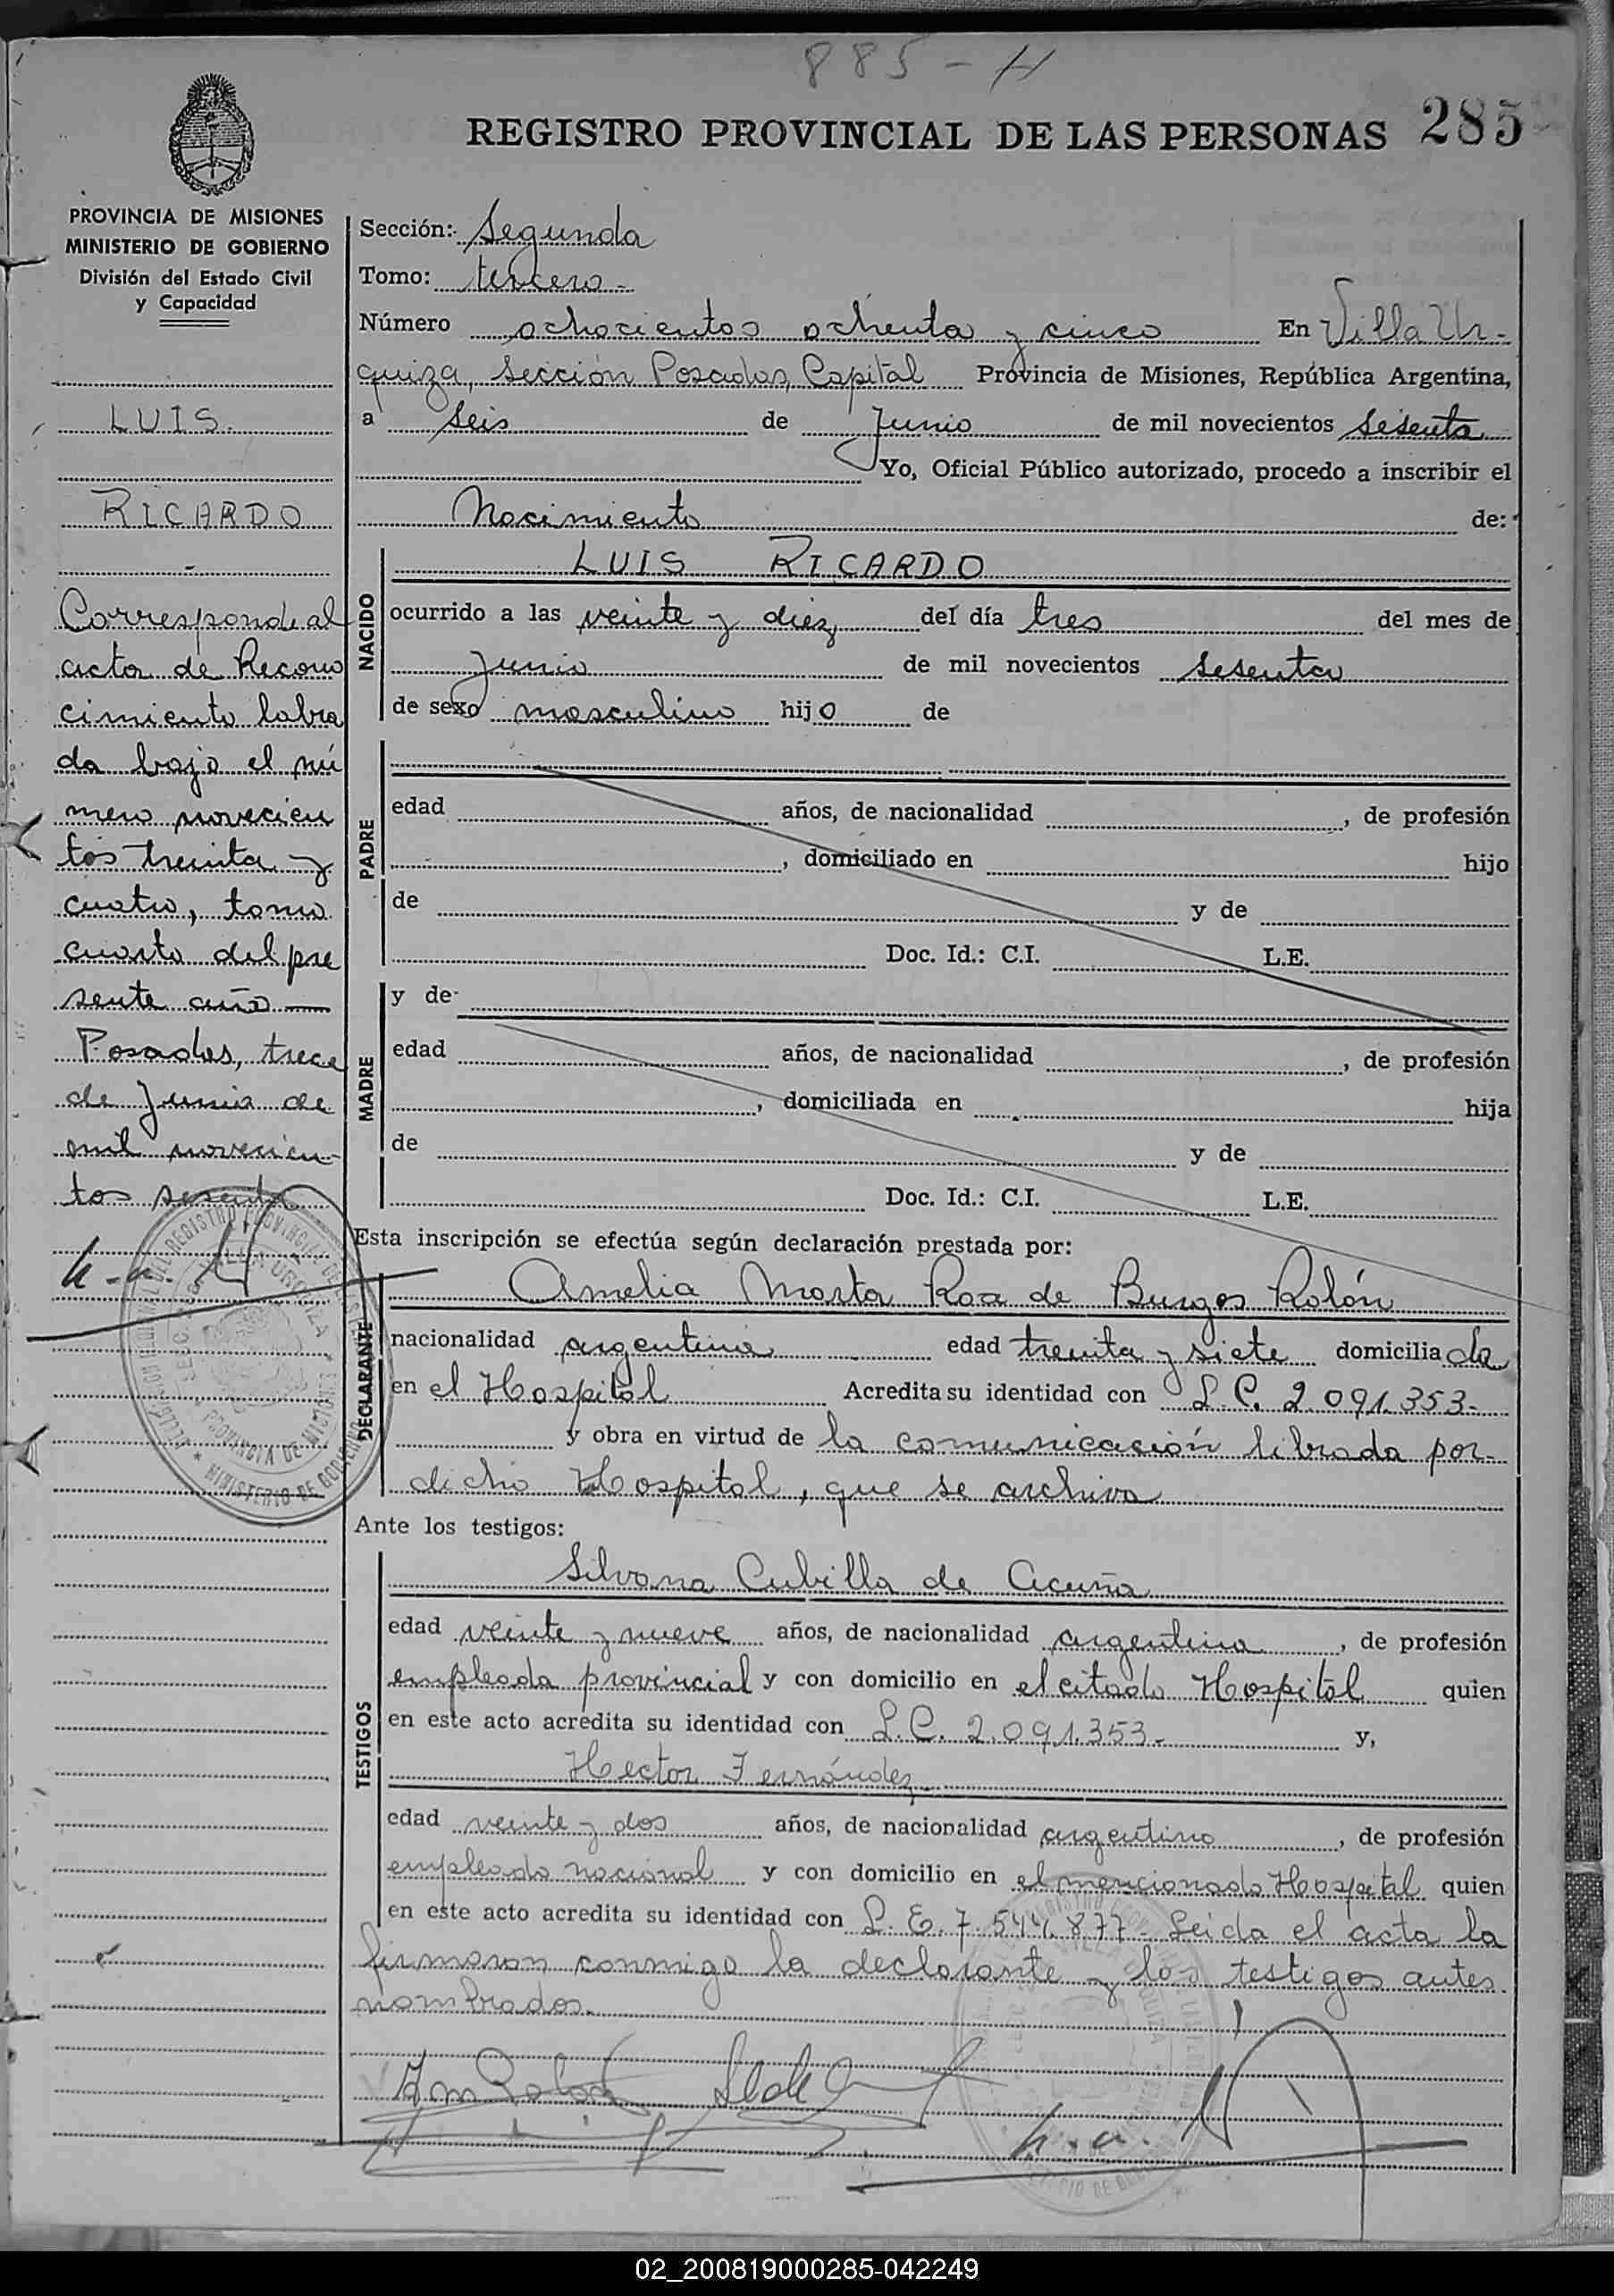 885-H
REGISTRO PROVINCIAL DE LAS PERSONAS 285
PROVINCIA DE MISIONES
MINISTERIO DE GOBIERNO
División del Estado Civil
y Capacidad
LUIS
RICARDO
Corresponde al
acta de Recono
cimiento labra
da bajo el nú
mero novecien
tos treinta y
cuatro, tomo
cuarto del pre
sente año
Posadas, trece
de Junio de
mil novecien-
tos sesenta
Sección: Segunda
Tomo: tercero-
Número ochocientos ochenta y cinco En Villa Ur-
quiza, Sección Posadas, Capital Provincia de Misiones, República Argentina,
a seis de Junio de mil novecientos sesenta
Yo, Oficial Público autorizado, procedo a inscribir el
Nacimiento de:
NACIDO
LUIS RICARDO
ocurrido a las veinte y diez del día tres del mes de
Junio de mil novecientos sesenta
de sexo masculino hijo de
PADRE
edad años, de nacionalidad , de profesión
, domiciliado en hijo
de y de
Doc. Id.: C.I. L.E.
MADRE
y de
edad años, de nacionalidad , de profesión
, domiciliada en hija
de y de
Doc. Id.: C.I. L.E.
Esta inscripción se efectúa según declaración prestada por:
DECLARANTE
Amelia Marta Roa de Burgos Rolón
nacionalidad argentina edad treinta y siete domiciliada
en el Hospital Acredita su identidad con L.C. 2.091.353-
y obra en virtud de la comunicación librada por-
dicho Hospital, que se archiva
Ante los testigos:
TESTIGOS
Silvana Cubilla de Acuña
edad veinte y nueve años, de nacionalidad argentina , de profesión
empleada provincial y con domicilio en el citado Hospital quien
en este acto acredita su identidad con L.C. 2.091.353- y,
Hector Fernández
edad veinte y dos años, de nacionalidad argentino , de profesión
empleado nacional y con domicilio en el mencionado Hospital quien
en este acto acredita su identidad con L.E. 7.544.877- Leida el acta la
firmaron conmigo la declarante y los testigos antes
nombrados.
02_200819000285-042249